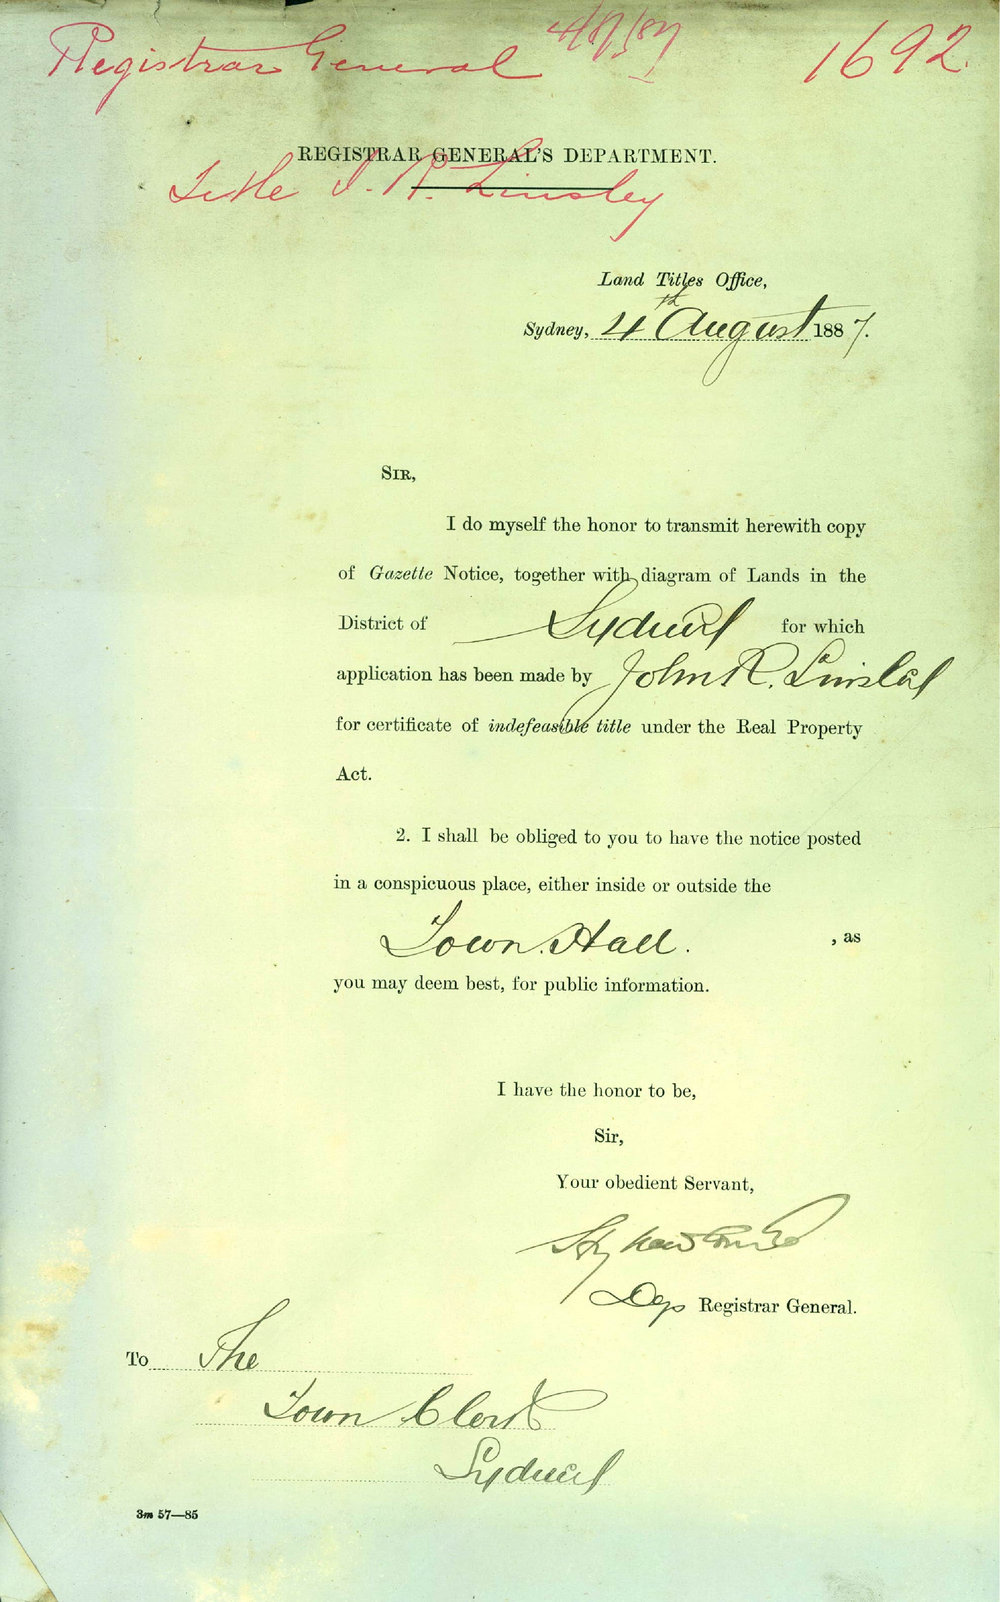 Registrar General 4/8/87 1692
REGISTRAR GENERAL'S DEPARTMENT.
Title J. R. Linsley
Land Titles Office,
Sydney, 4th August 1887.
SIR,
I do myself the honor to transmit herewith copy
of Gazette Notice, together with diagram of Lands in the
District of Sydney for which
application has been made by John R. Linsley
for certificate of indefeasible title under the Real Property
Act.
2. I shall be obliged to you to have the notice posted
in a conspicuous place, either inside or outside the
Town Hall. , as
you may deem best, for public information.
I have the honor to be,
Sir,
Your obedient Servant,
Dep Registrar General.
To The
Town Clerk
Sydney
3m 57—85